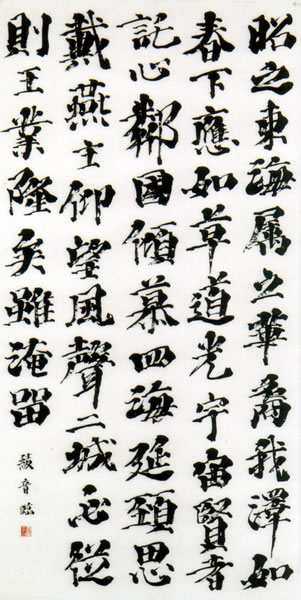 昭之東海属之華裔我澤如
春下應如草道光宇宙賢者
託心鄰國傾慕四海延頸思
戴燕主仰望風聲二城必從
則王業隆矣雖淹留
音臨